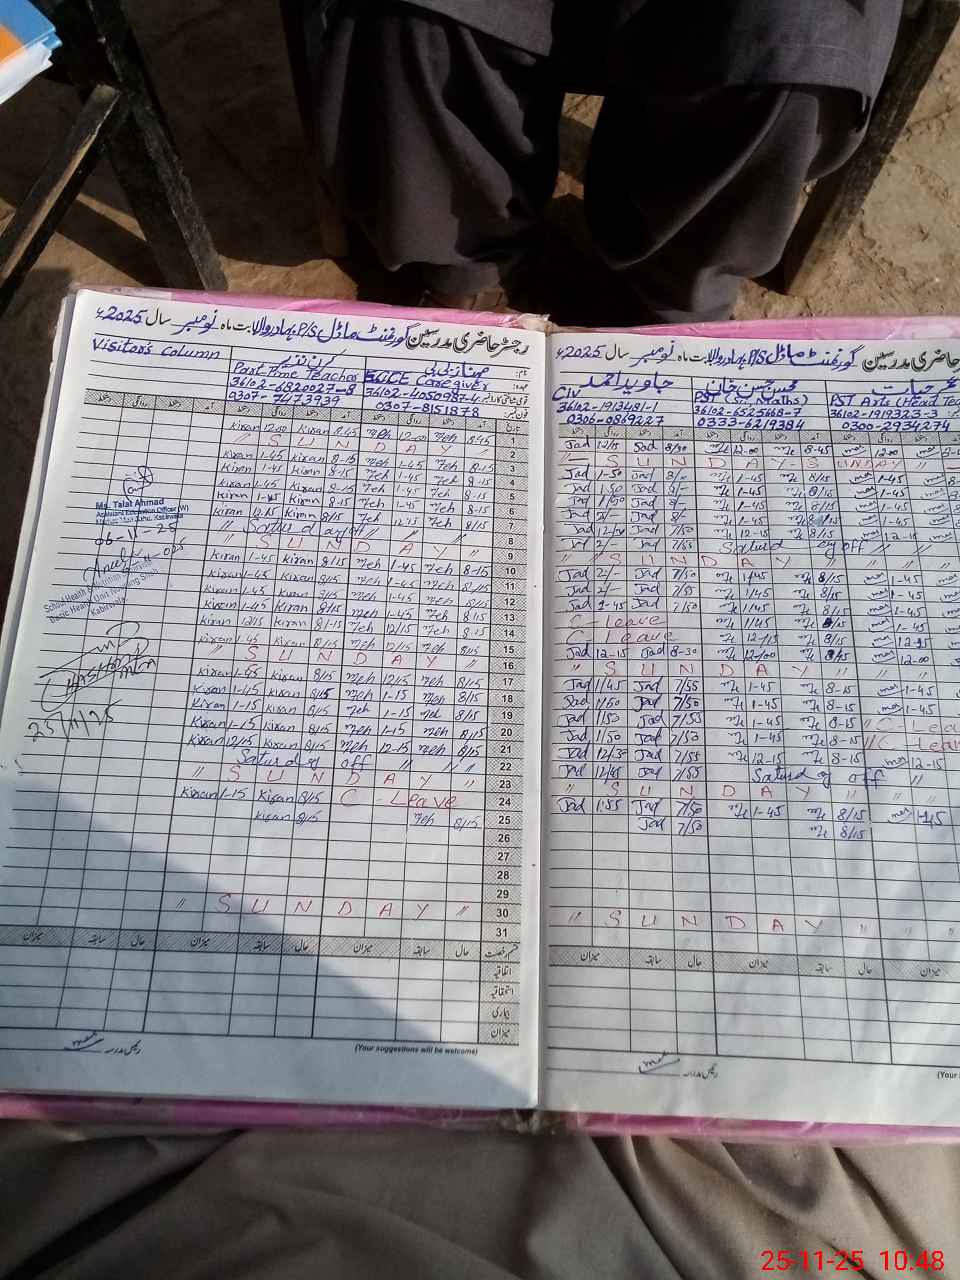 رجسٹر حاضری مدرسین گورنمنٹ ماڈل P/S بہادر والا بابت ماہ نومبر سال 2025ء
Visitor's Column
کرن نذیر
مہناز بی بی
نام:
Part Time Teacher
ECCE Caregiver
عہدہ:
36102-6820027-8
36102-4050987-4
قومی شناختی کارڈ نمبر
0307-7473939
0307-8151878
فون نمبر:
تاریخ
آمد دستخط روانگی دستخط
Kiran 12-00 Kiran 8-45 Meh 12-00 Meh 8-45 1
" S U N D A Y " 2
Kiran 1-45 Kiran 8-15 Meh 1-45 Meh 8-15 3
Kiran 1-45 Kiran 8-15 Meh 1-45 Meh 8-15 4
Kiran 1-45 Kiran 8-15 Meh 1-45 Meh 8-15 5
Kiran 1-45 Kiran 8-15 Meh 1-45 Meh 8-15 6
Kiran 12-15 Kiran 8/15 Meh 12/15 Meh 8/15 7
" Saturday off " " 8
" S U N D A Y " 9
Kiran 1-45 Kiran 8/15 Meh 1-45 Meh 8-15 10
Kiran 1-45 Kiran 8/15 Meh 1-45 Meh 8/15 11
Kiran 1-45 Kiran 8/15 Meh 1-45 Meh 8/15 12
Kiran 1-45 Kiran 8/15 Meh 1-45 Meh 8/15 13
Kiran 12/15 Kiran 8/-15 Meh 12/15 Meh 8-15 14
Kiran 1-45 Kiran 8/15 Meh 12/15 Meh 8/15 15
" S U N D A Y " 16
Kiran 1-45 Kiran 8/15 Meh 12/15 Meh 8/15 17
Kiran 1-45 Kiran 8/15 Meh 1-15 Meh 8/15 18
Kiran 1-15 Kiran 8/15 Meh 1-15 Meh 8/15 19
Kiran 1-15 Kiran 8/15 Meh 1-15 Meh 8/15 20
Kiran 12/15 Kiran 8/15 Meh 12-15 Meh 8/15 21
Saturday off " " " 22
" S U N D A Y " 23
Kiran 1-15 Kiran 8/15 C - Leave 24
Kiran 8/15 Meh 8/15 25
26
27
28
29
" S U N D A Y " 30
31
میزان سابقہ حال میزان سابقہ حال میزان سابقہ حال قسم رخصت
اتفاقیہ
استحقاقیہ
بیماری
میزان
رئیس مدرسہ
(Your suggestions will be welcome)
Ms. Talat Ahmad
Assistant Education Officer (W)
06-11-25
School Health & Nutrition Supervisor
Kabirwala
25/11/25
حاضری مدرسین گورنمنٹ ماڈل P/S بہادر والا بابت ماہ نومبر سال 2025ء
جاوید احمد
محسن حسن خان
حیات
Civ
PST (Sc. Maths)
PST Arts (Head Tea
36102-1913481-1
36102-6525668-7
36102-1919323-3
0306-0869227
0333-6219384
0300-2934274
Jad 12/15 Jad 8/50 12-00 8-45 12-00
" S U N D A Y - S U N D A Y "
Jad 1-50 Jad 8/- 1-45 8/15 1-45
Jad 1-50 Jad 8/- 1-45 8/15 1-45
Jad 1/50 Jad 8/- 1-45 8/15 1-45
Jad 2/- Jad 8/- 1-45 8/15 1-45
Jad Jad 7/55 12-15 8/15 12-15
Jad 2/- Jad 7/55 Saturday off " "
" S U N D A Y "
Jad 2/- Jad 7/50 1/45 8/15 1-45
Jad 2/- Jad 7/55 1-45 8/15 1-45
Jad 1-45 Jad 7/50 1/45 8/15 1-45
C - Leave 1/45 8/15 1-45
C - Leave 12-15 8/15 12-15
Jad 12-15 Jad 8-30 12/00 8/45 12-00
" S U N D A Y "
Jad 1/45 Jad 7/55 1-45 8-15 1-45
Jad 1/50 Jad 7/50 1-45 8-15 1-45
Jad 1/50 Jad 7/55 1-45 8-15 " C - Lea
Jad 1/50 Jad 7/53 1-45 8-15 " C - Lea
Jad 12/30 Jad 7/55 12-15 8-15 12-15
Jad 12/45 Jad 7/55 Saturday off " "
" S U N D A Y "
Jad 1-55 Jad 7/50 1-45 8/15 1-45
Jad 7/50 8/15
" S U N D A Y "
میزان سابقہ حال میزان سابقہ حال میزان
رئیس مدرسہ
(Your s
25-11-25 10:48